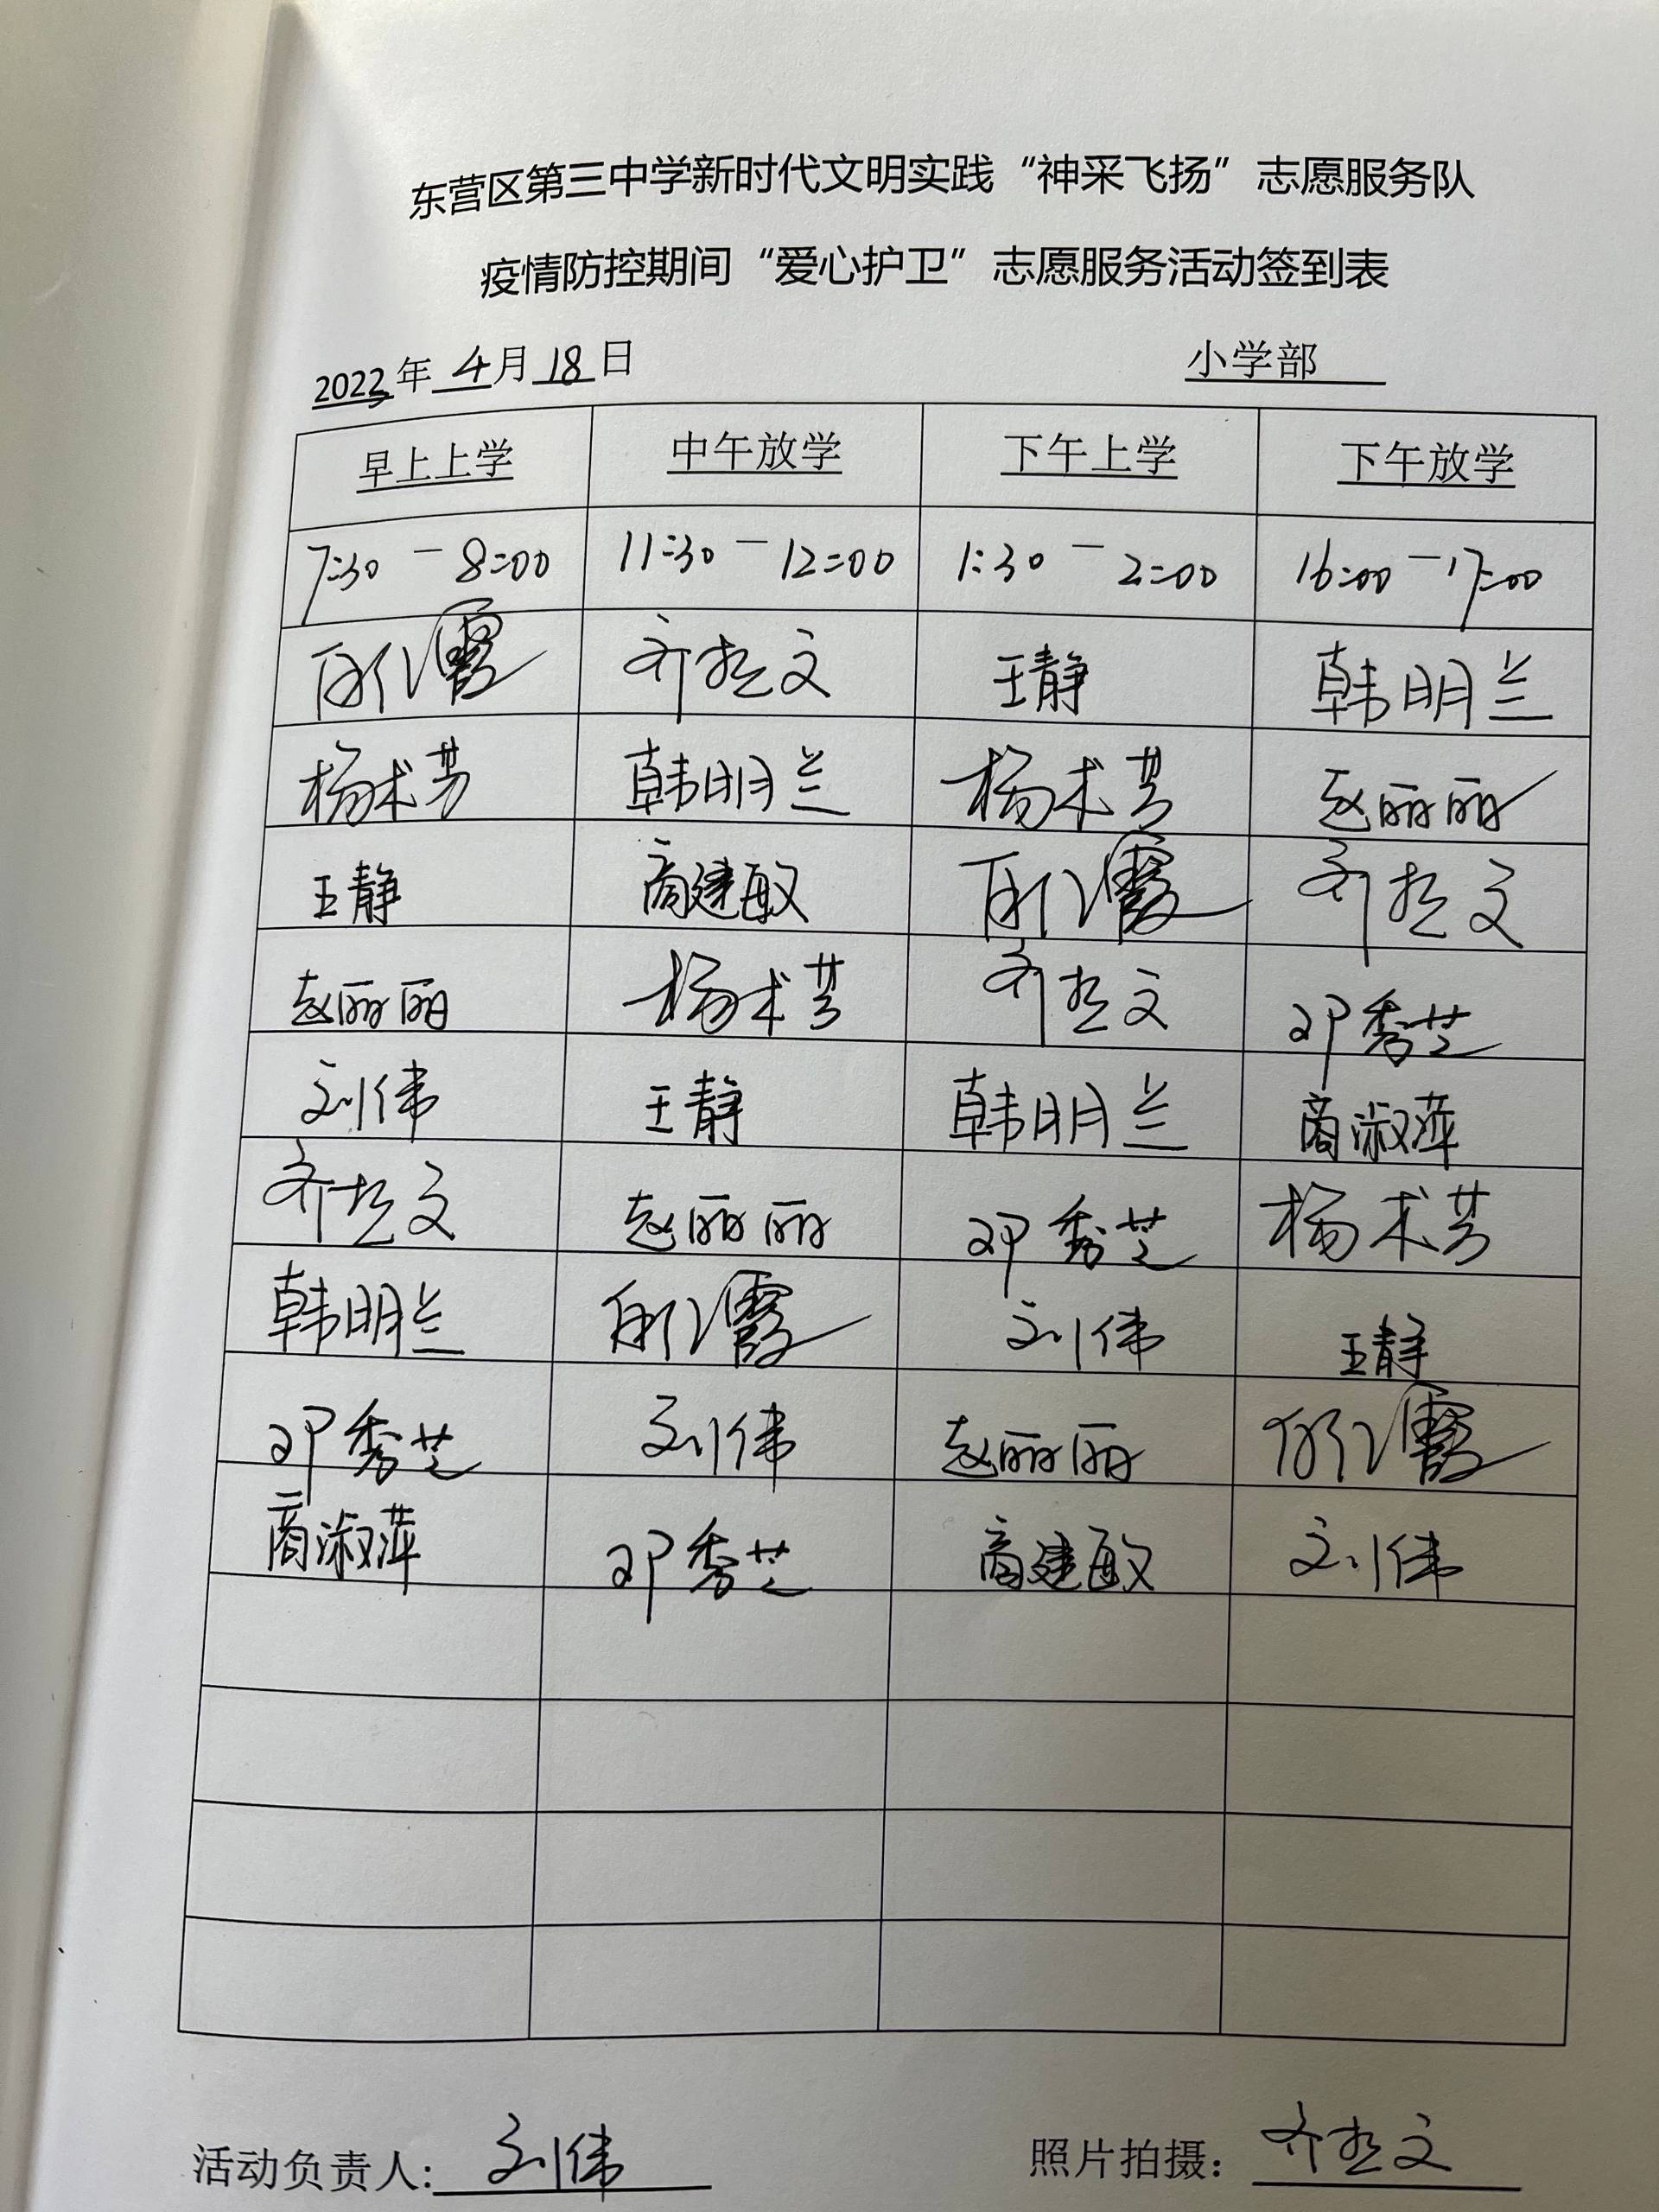 东营区第三中学新时代文明实践“神采飞扬”志愿服务队
疫情防控期间“爱心护卫”志愿服务活动签到表
2023年 4月 18日 小学部
早上上学 中午放学 下午上学 下午放学
7:30 — 8:00 11:30 — 12:00 1:30 — 2:00 16:00 — 17:00
霞 齐 文 王静 韩明兰
杨术芳 韩明兰 杨术芳 赵丽丽
王静 商建敏 霞 齐 文
赵丽丽 杨术芳 齐 文 邓秀芝
刘伟 王静 韩明兰 商淑萍
齐 文 赵丽丽 邓秀芝 杨术芳
韩明兰 霞 刘伟 王静
邓秀芝 刘伟 赵丽丽 霞
商淑萍 邓秀芝 商建敏 刘伟
活动负责人: 刘伟 照片拍摄: 齐 文